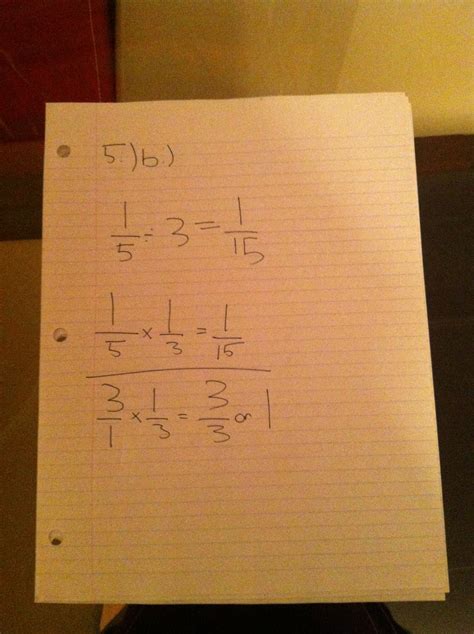 5.)b.)
1/5 ÷ 3 = 1/15
1/5 × 1/3 = 1/15
3/1 × 1/3 = 3/3 or 1